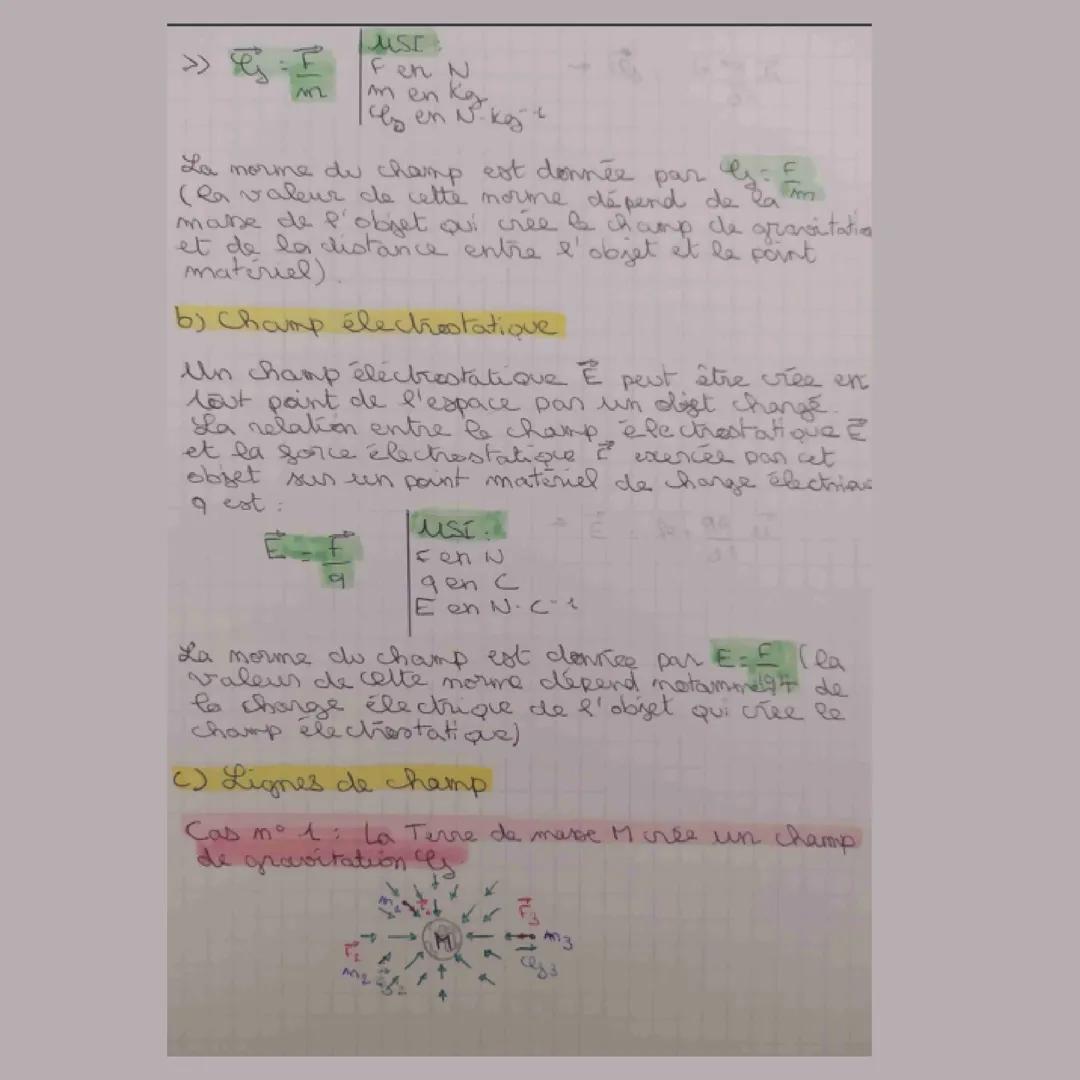 >> 𝒢⃗ = F⃗/m
USI:
F en N
m en Kg
𝒢 en N·Kg⁻¹
La norme du champ est donnée par 𝒢 = F/m
(la valeur de cette norme dépend de la
masse de l'objet qui crée le champ de gravitatio
et de la distance entre l'objet et le point
matériel).
b) Champ électrostatique
Un champ électrostatique E⃗ peut être crée en
tout point de l'espace par un objet chargé.
La relation entre le champ électrostatique E⃗
et la force électrostatique F⃗ exercée par cet
objet sur un point matériel de charge électrique
q est :
E⃗ = F⃗/q
USI:
F en N
q en C
E en N·C⁻¹
La norme du champ est donnée par E = F/|q| (la
valeur de cette norme dépend notamment de
la charge électrique de l'objet qui crée le
champ électrostatique)
c) Lignes de champ
Cas n° 1 : La Terre de masse M crée un champ
de gravitation 𝒢
F⃗₃
M
m₃
F⃗₂
𝒢₃
m₂